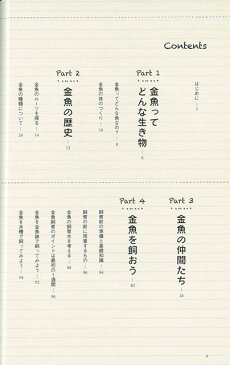 Contents
はじめに…2
Part 1
金魚って
どんな生き物
6
金魚ってどんな魚なの?…8
金魚の体のつくり…10
Part 2
金魚の歴史
12
金魚のルーツを探る…14
金魚の種類について
Part 3
金魚の仲間たち
26
Part 4
金魚を飼おう
82
飼育前の準備と基礎知識…84
飼育の前に用意するもの…86
金魚の飼育水を考える…88
金魚飼育のポイントは最初の1週間…90
金魚を金魚鉢で飼ってみよう…92
金魚を水槽で飼ってみよう…94